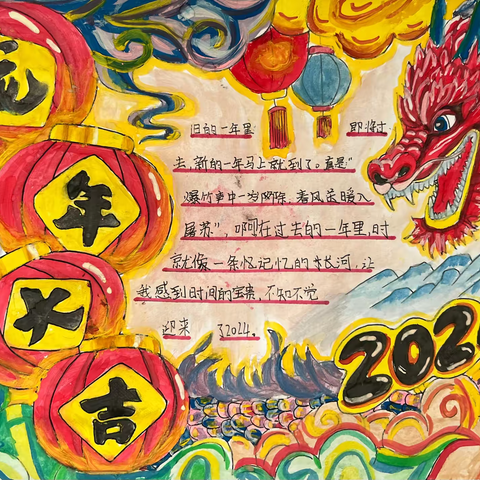 龙
年
大
吉
旧的一年里 即将过
去,新的一年马上就到了。真是"
爆竹声中一岁除,春风送暖入
屠苏",啊在过去的一年里,时
就像一条忆记忆的长河,让
我感到时间的宝贵,不知不觉
迎来 了2024。
202